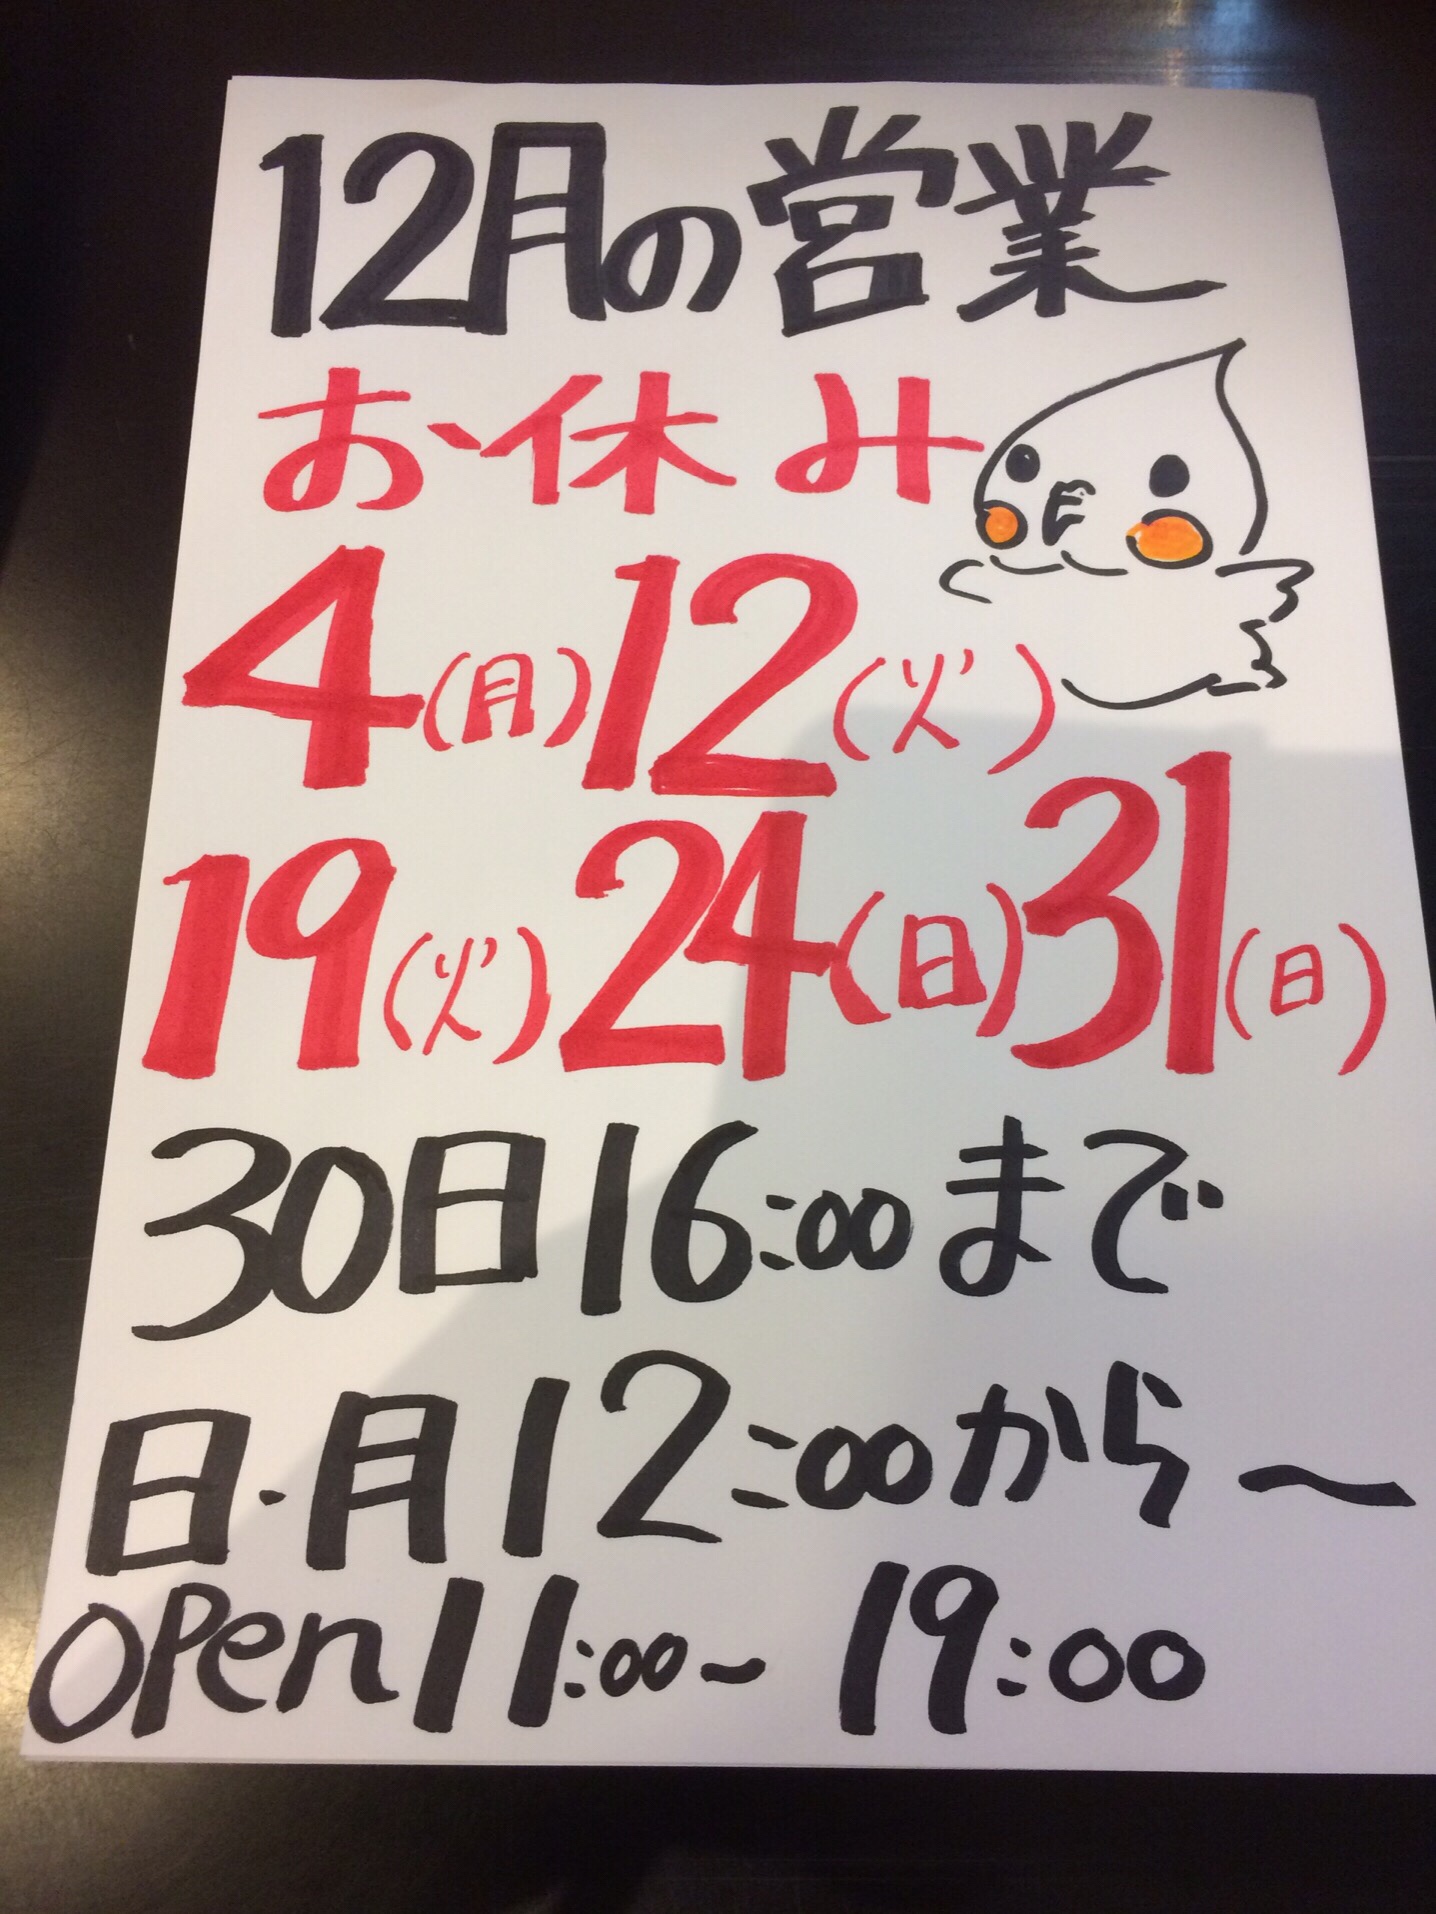 12月の営業
お休み
4(月)12(火)
19(火)24(日)31(日)
30日16:00まで
日・月12:00から〜
OPen11:00〜19:00